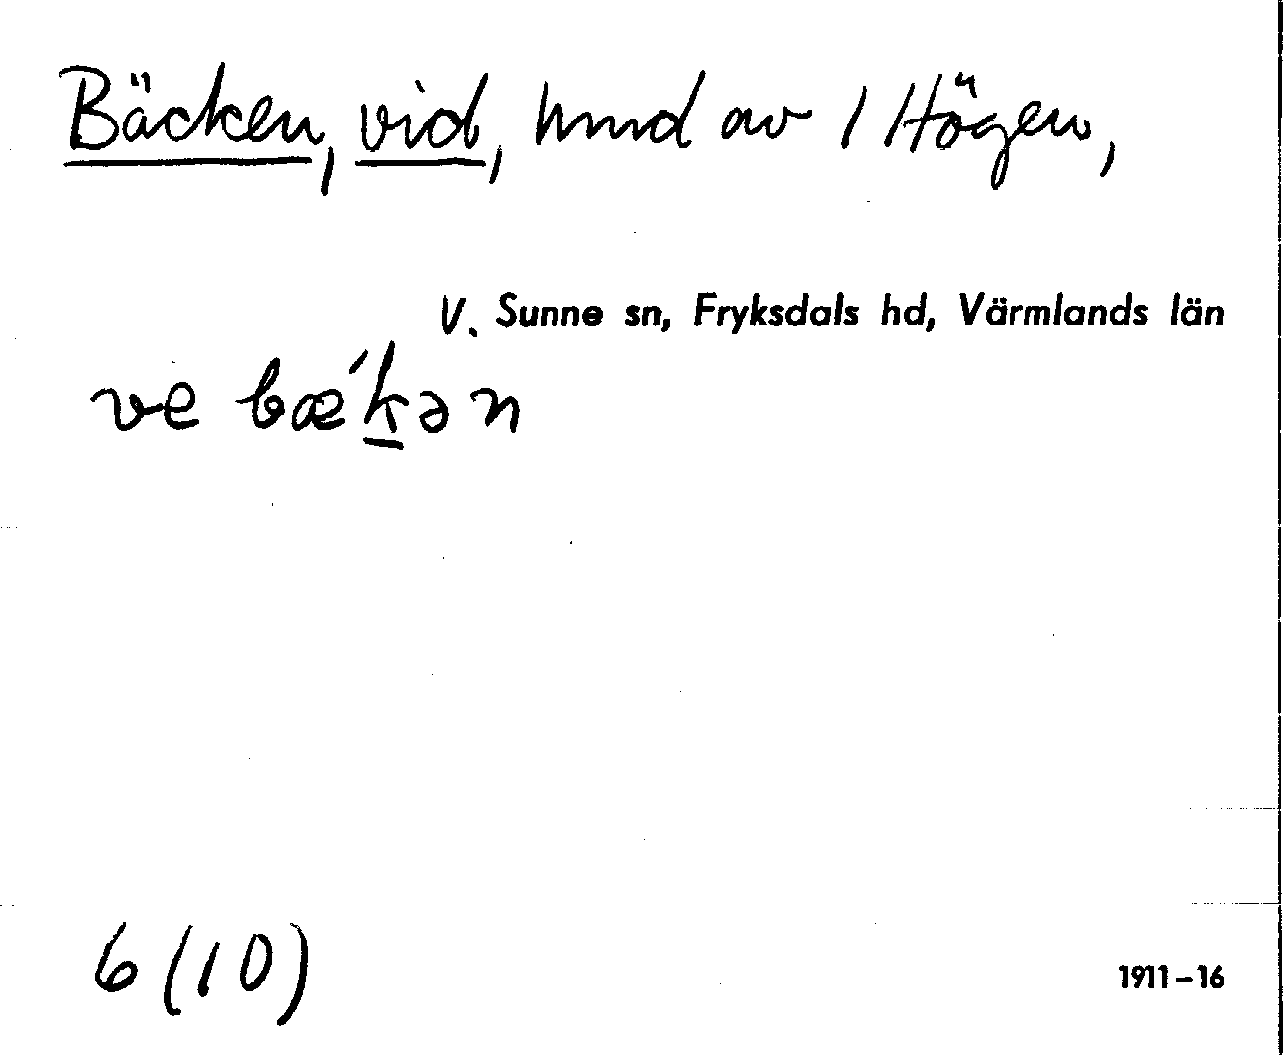 Bäcken, vid, hmnd av 1 Högen,
V. Sunne sn, Fryksdals hd, Värmlands län
ve bæ´k̲ən
6 (10)
1911–16